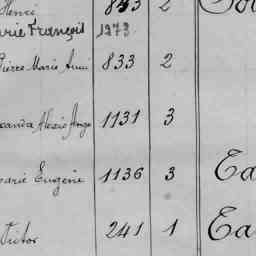 Henri 843 2
arie François 1273
Pierre Marie Aimé 833 2
Alexis Ange 1131 3
Marie Eugène 1136 3 Ca
Victor 241 1 Ca